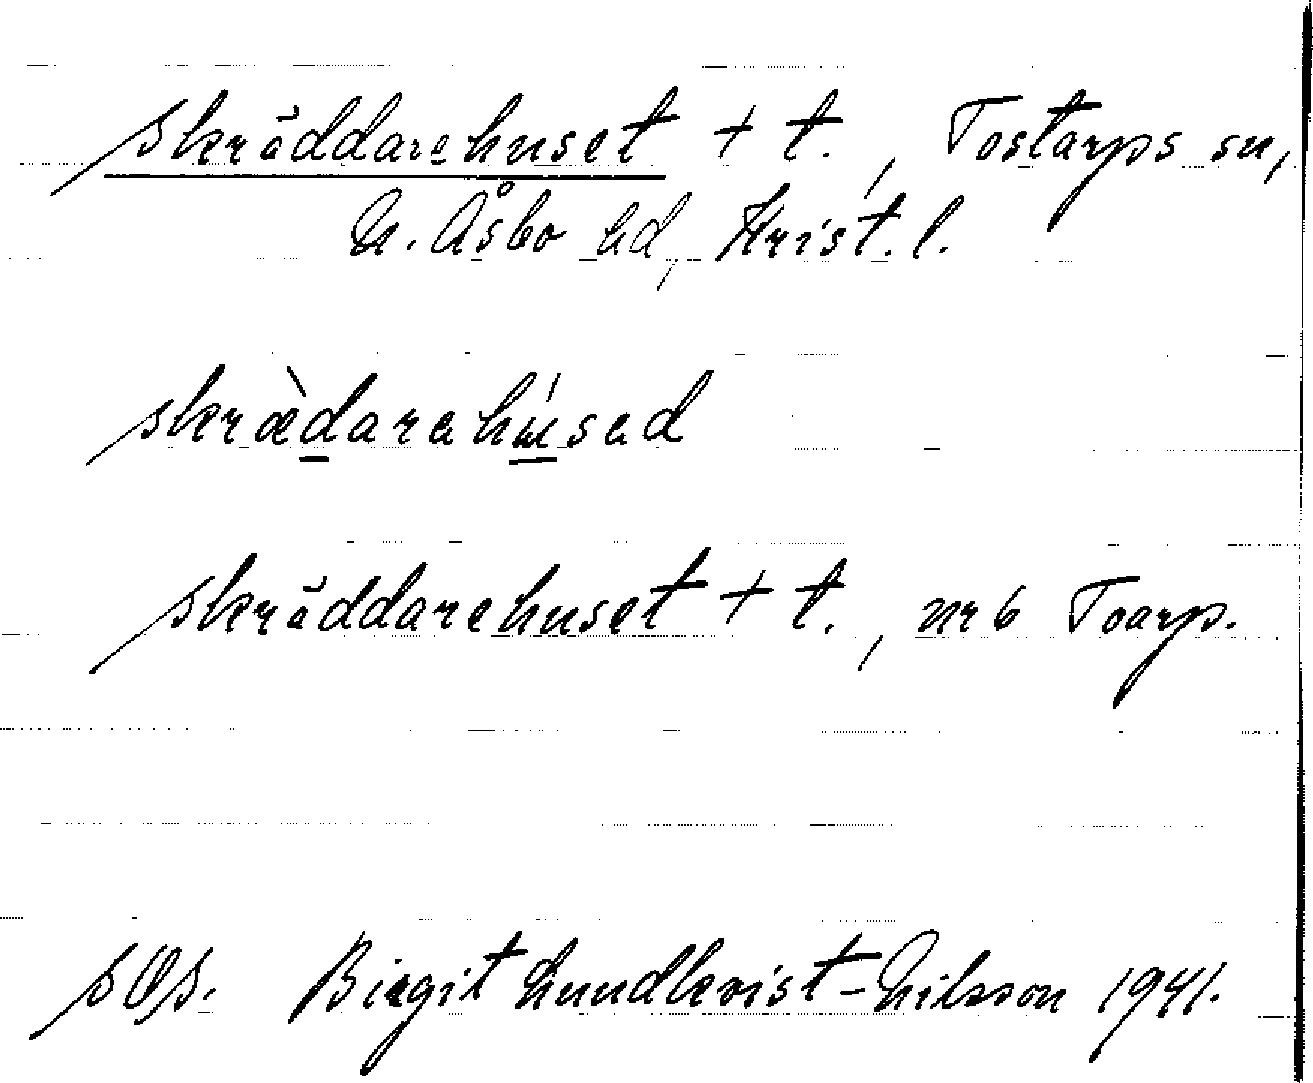 skräddarehuset + t., Tostarps sn,
N. Åsbo hd, Krist. l.
skræ̀darehúsed
skräddarehuset + t., nr 6 Toarp.
sOs. Birgit Lundkvist-Nilsson 1941.